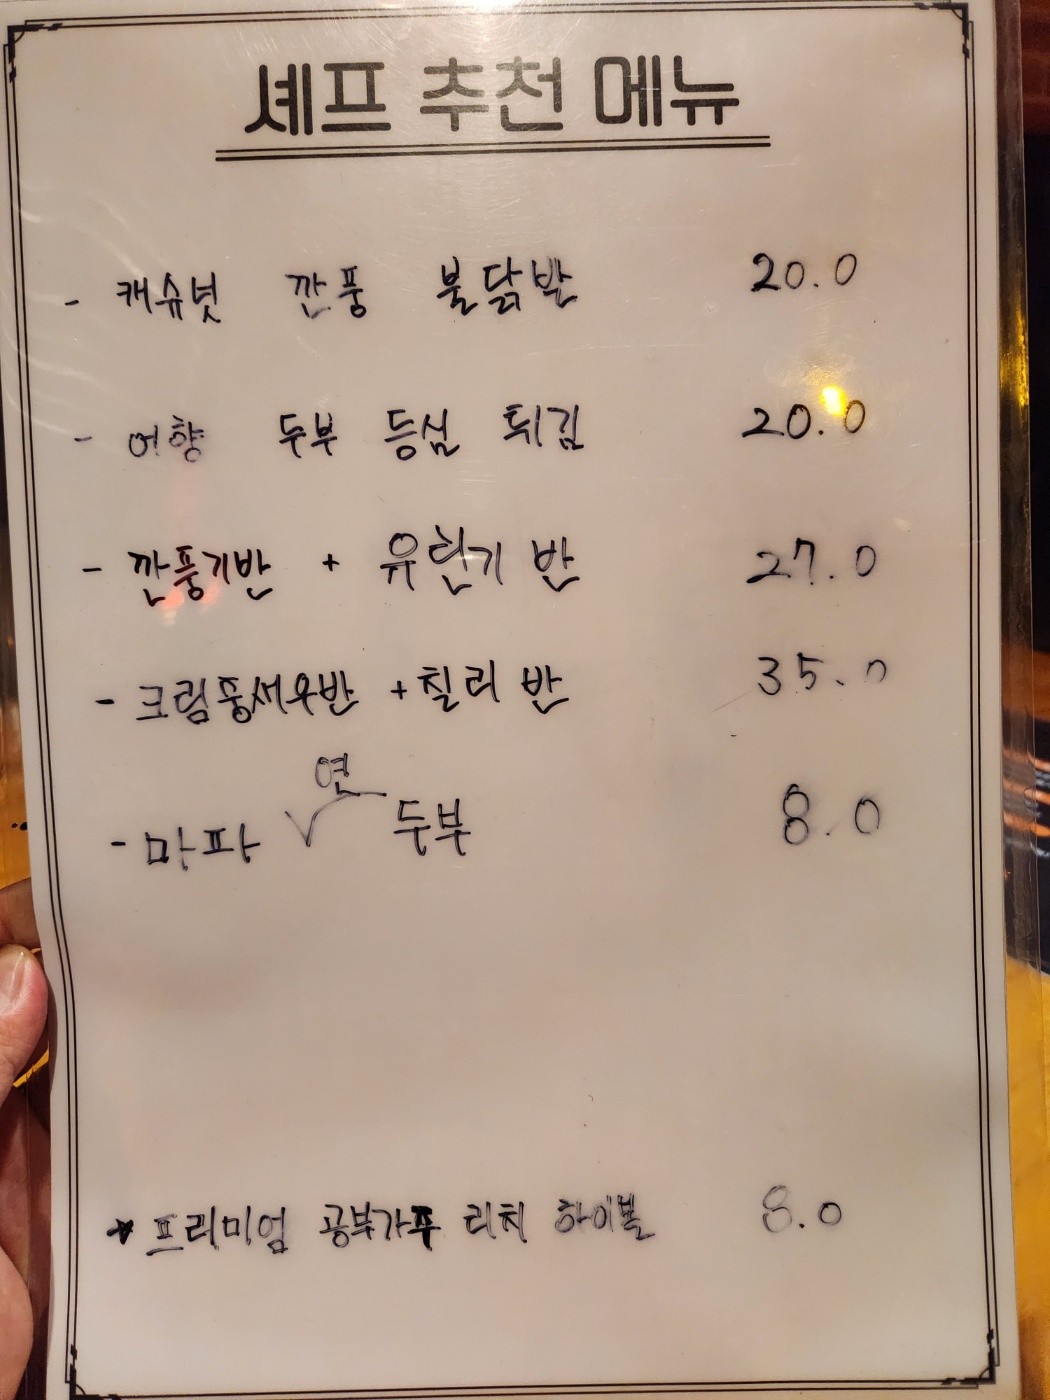 셰프 추천 메뉴
- 캐슈넛 깐풍 불닭발 20.0
- 어향 두부 등심 튀김 20.0
- 깐풍기반 + 유린기 반 27.0
- 크림풍새우반 + 칠리 반 35.0
연
- 마파 √ 두부 8.0
* 프리미엄 공부가주 리치 하이볼 8.0